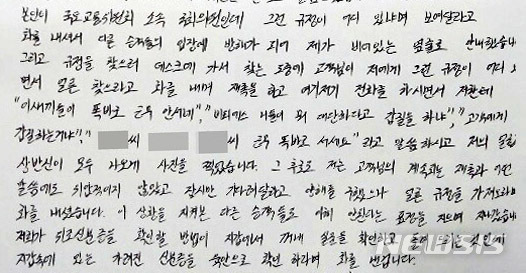 본인이 국토교통위원회 소속 국회의원인데 그런 규정이 어디 있냐며 보여달라고
화를 내셔서 다른 승객들의 입장에 방해가 되어 제가 비어있는 옆쪽로 안내했습니
그리고 규정을 찾으러 데스크에 가서 찾는 도중에 고객님이 저에게 그런 규정이 어디
면서 얼른 찾으라고 화를 내며 재촉을 하고 여기저기 전화를 하시면서 저한테
"이새끼들이 똑바로 근무 안서네", "니들이 뭐 대단하다고 갑질을 하냐", "고객에게
갑질하는거냐", " 씨 씨 씨 근무 똑바로 서세요" 라고 말씀 하시고 저의 얼굴
상반신이 모두 나오게 사진을 찍었습니다. 그 후로도 저는 고객님의 계속되는 재촉과
말씀에도 위압적이지 않았고 잠시만 기다려달라고 양해를 구했으나 얼른 규정을 가져오라며
화를 내셨습니다. 이 상황을 지켜본 다른 승객들도 표정을 지으며
제가 위조신분증을 확인할 방법이 지갑에서 꺼내 확인하고
지갑속에 있는 가려진 신분증을 육안으로 확인 하라며 화를 냈습니다.
NEWSIS